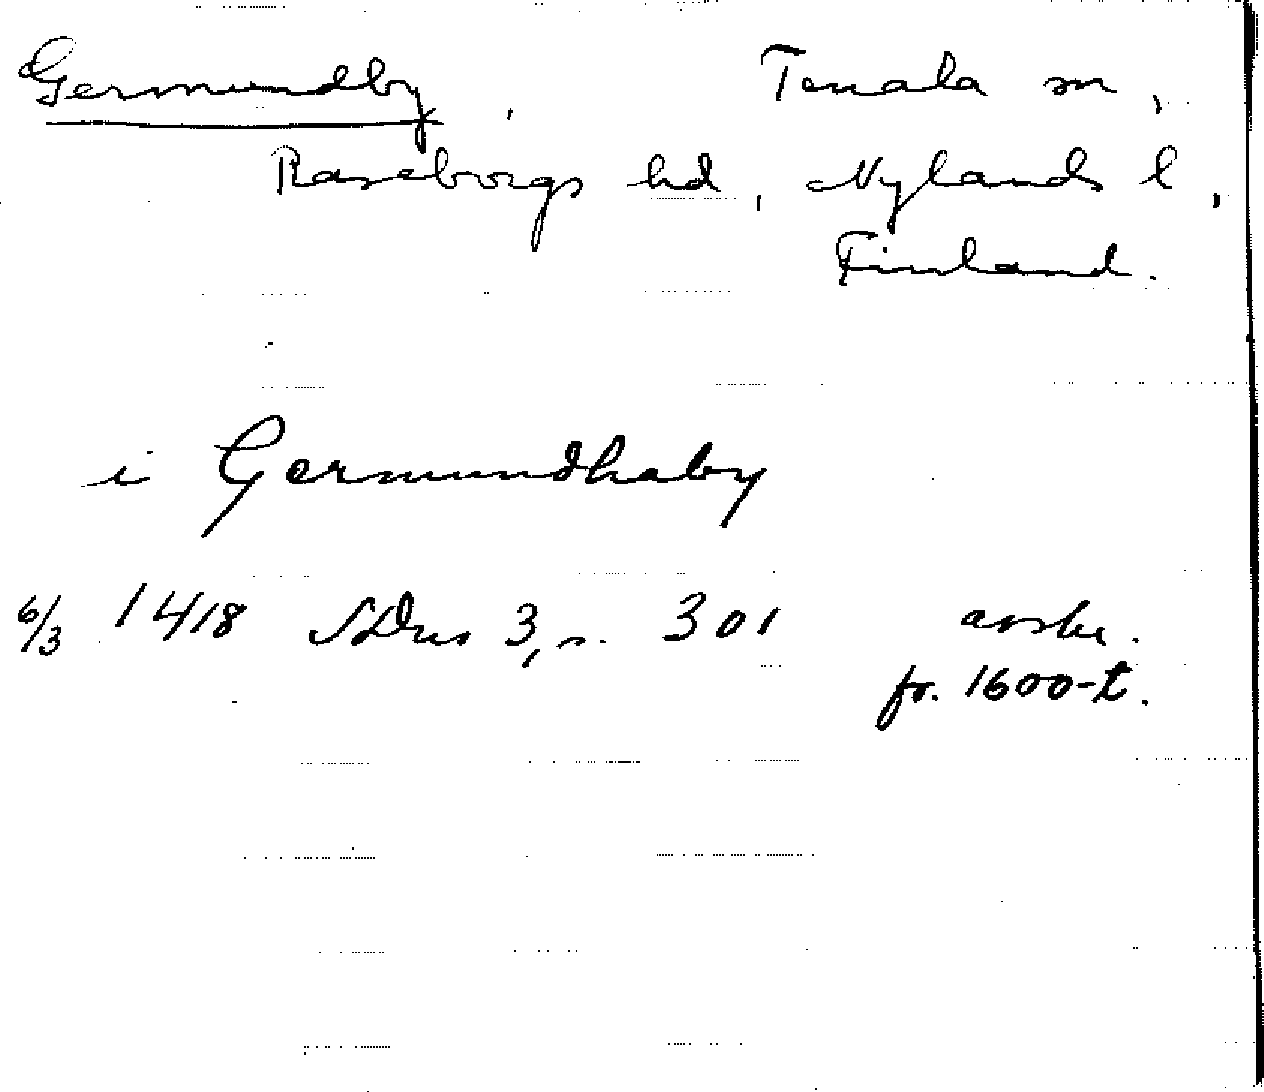 Germundby, Tenala sn,
Raseborgs hd, Nylands l,
Finland.
i Germundhaby
6/3 1418 SDns 3, s. 301 avskr.
fr. 1600-t.